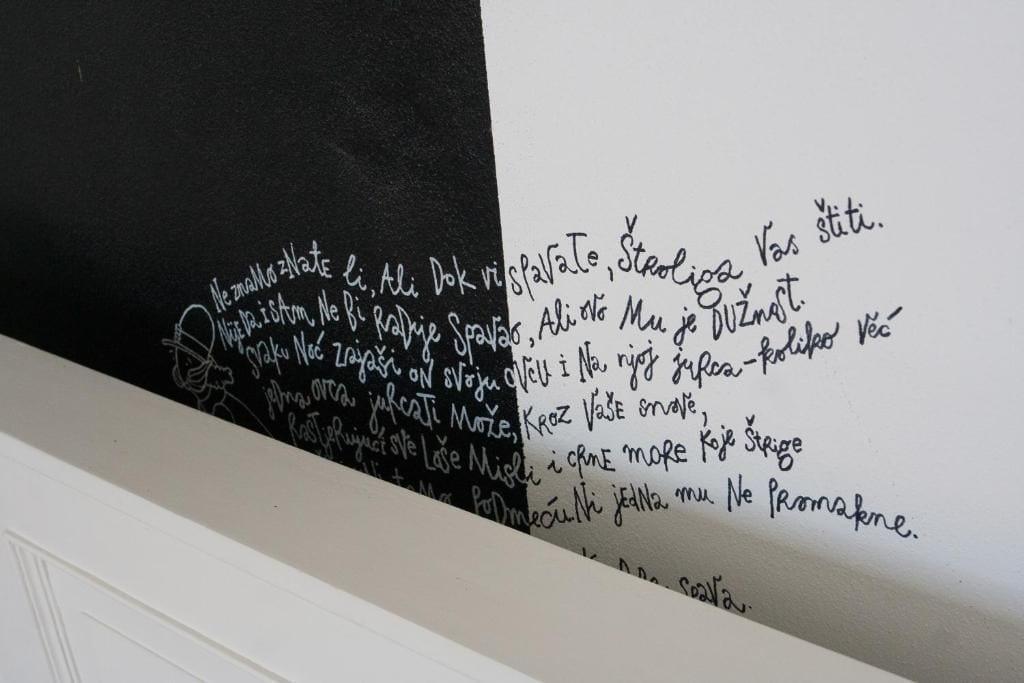 Ne znamo zNate li, Ali Dok vi spavate, Štroliga Vas štiti.
Nije da i sAm Ne Bi Radije Spavao, Ali ovo Mu je DUŽnost.
Svaku Noć zajaši oN svoju oVcu i Na njoj juRca-koliko Već
jedna ovca juRcaTi Može, KRoz Vaše snove,
RasTjeRujući sve Loše Misli i cRNe moRe Koje Štrige
PoDmeću. Ni jeDNa mu Ne PRomakne.
spava.